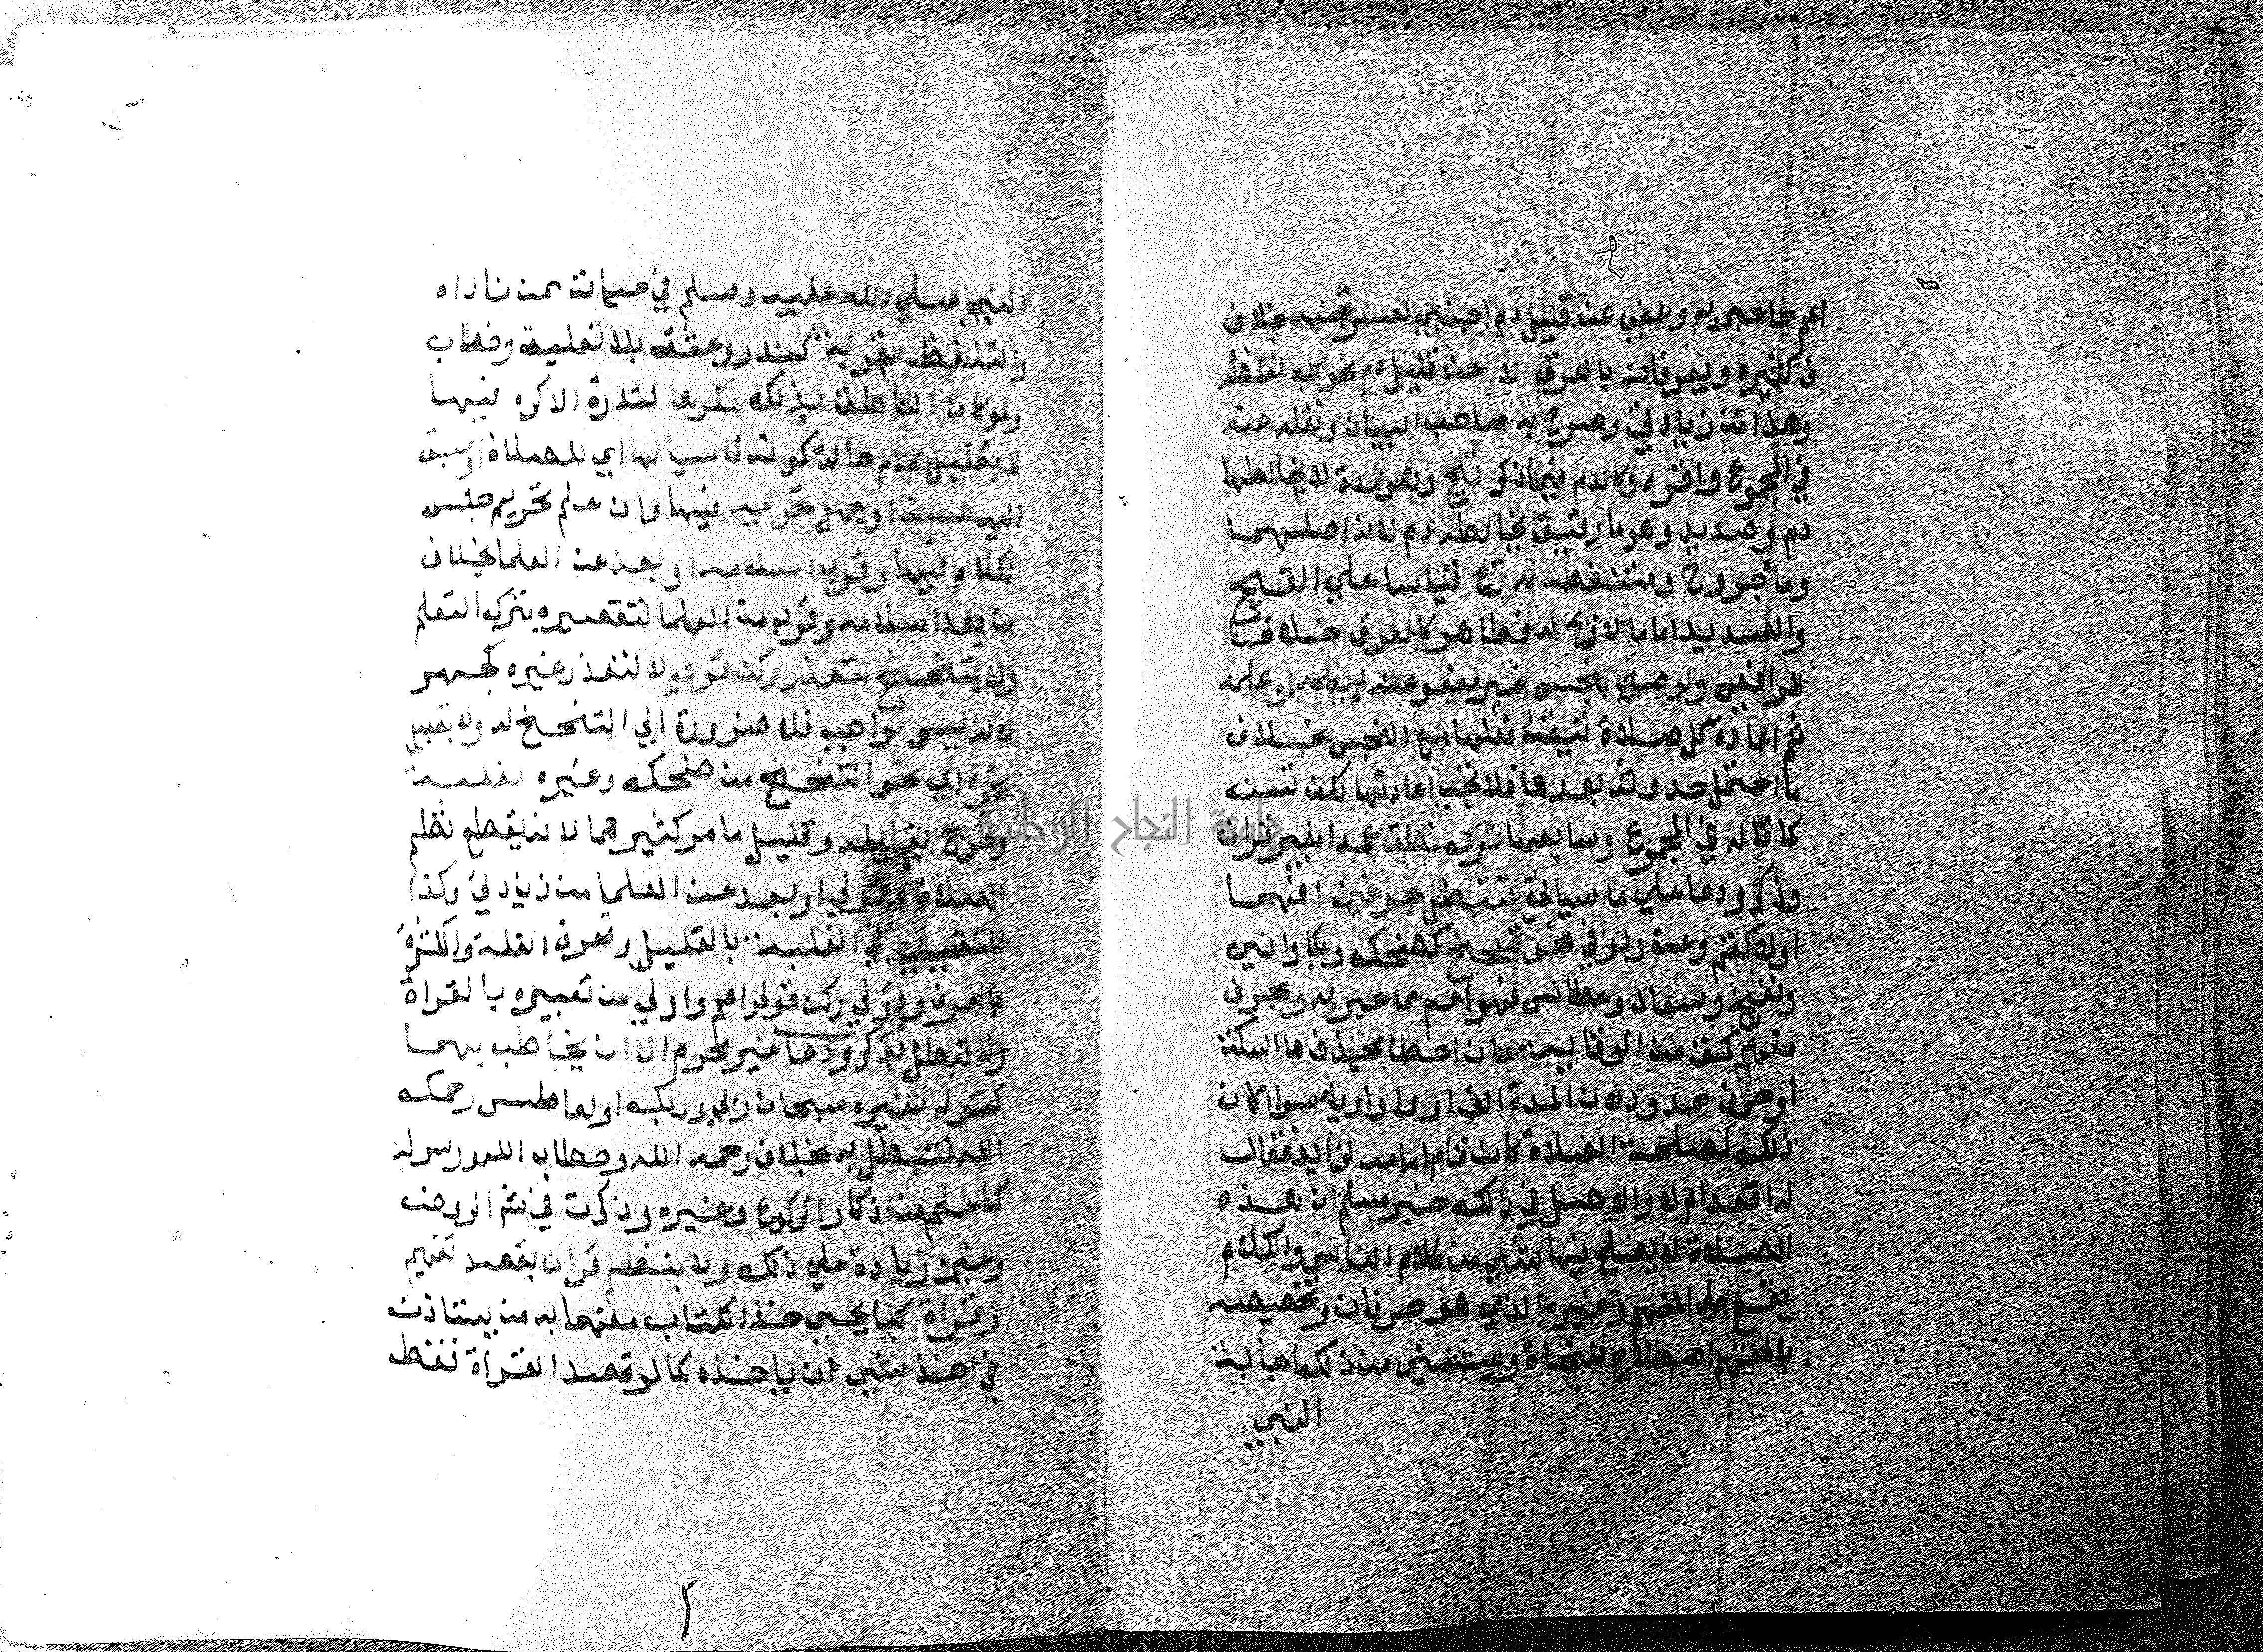 اعم مما عبر به وعفي عن قليل دم اجنبي لعسر تجنبه بخلاف
ف كثيره ويعرفان بالعرف لا عن قليل دم نحو كلب لغلظه
وهذا من زيادتي وصرح به صاحب البيان ونقله عنه
في المجموع واقره وكالدم فيما ذكر قيح وهو مدة لا يخالطها
دم وصديد وهو ما رقيق يخالطه دم لانه اصلهما
وما جروح ومتنفط له ريح قياسا علي القيح
والصديد اما ما لا ريح له فطاهر كالعرق خلافا
للرافعي ولو صلي بنجس غير معفو عنه لم يعلمه او علمه
ثم اعادة كل صلاة تيقن فعلها مع النجس بخلاف
ما احتمل حدوثه بعدها فلا تجب اعادتها لكن تسن
كما قاله في المجموع وسابعها ترك نطق عمدا بغير قران
وذكر ودعا علي ما سياتي فتبطل بحرفين افهما
اولا كقم وعن ولو في نحو تنحنح كضحك وبكا وانين
ونفخ وسعال وعطاس فهو اعم مما عبر به وبحرف
مفهم كق من الوقاية وان اخطا بحذف ها السكت
او حرف ممدود لان المدة الف او واو او يا سوا كان
ذلك لمصلحة الصلاة كان قام امامه لزايد فقال
له اقعد ام لا والاصل في ذلك خبر مسلم ان هذه
الصلاة لا يصلح فيها شي من كلام الناس والكلام
يقع علي المفهم وغيره الذي هو حرفان وتخصيصه
بالمفهم اصطلاح للنحاة ويستثني من ذلك اجابة
النبي
النبي صلي الله عليه وسلم في حياته ممن ناداه
والتلفظ بقربة كنذر وعتق بلا تعليق وخطاب
ولو كان الناطق بذلك مكرها لندرة الاكره فيها
لا بقليل كلام حالة كونه ناسيا لها اي للصلاة او سبق
اليه لسانه او جهل تحريمه فيها وان علم تحريم جنس
الكلام فيها وقرب اسلامه او بعد عن العلما بخلاف
من بعد اسلامه وقرب من العلما لتقصيره بترك التعلم
ولا بتنحنح لتعذر ركن قولي لا لتعذر غيره كجهر
لانه ليس بواجب فلا ضرورة الي التنحنح له ولا بقليل
نحوه اي نحو التنحنح من ضحك وغيره لغلبة
وخرج بقليله وقليل ما مر كثيرهما لانه يقطع نظم
الصلاة وقولي او بعد عن العلما من زيادتي وكذا
التقييد في الغلبة بالقليل وتعرف القلة والكثرة
بالعرف وقولي ركن قولي اعم واولي من تعبيره بالقراة
ولا تبطل بذكر ودعا غير محرم الا ان يخاطب بهما
كقوله لغيره سبحان ربي وربك او لعاطس رحمك
الله فتبطل به بخلاف رحمه الله وخطاب الله ورسوله
كما علم من اذكار الركوع وغيره وذكرت في شرح الروض
وغيره زيادة علي ذلك ولا بنظم قران بقصد تفهيم
وقراة كيا يحيي خذ الكتاب مفهما به من يستاذن
في اخذ شي ان ياخذه كما لو قصد القراة فقط